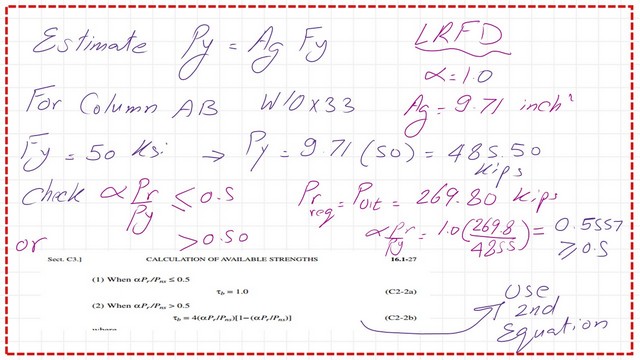 Estimate Py = Ag Fy
LRFD
α = 1.0
For Column AB W10x33 Ag = 9.71 inch²
Fy = 50 ksi → Py = 9.71 (50) = 485.50 kips
Check α Pr/Py ≤ 0.5
Pr req = Pult = 269.80 kips
or > 0.50
α Pr/Py = 1.0 (269.8/485.5) = 0.5557 ≥ 0.5
Sect. C3.] CALCULATION OF AVAILABLE STRENGTHS 16.1-27
(1) When αPr/Pns ≤ 0.5
τb = 1.0 (C2-2a)
(2) When αPr/Pns > 0.5
τb = 4(αPr/Pns)[1−(αPr/Pns)] (C2-2b)
where
Use
2nd
Equation